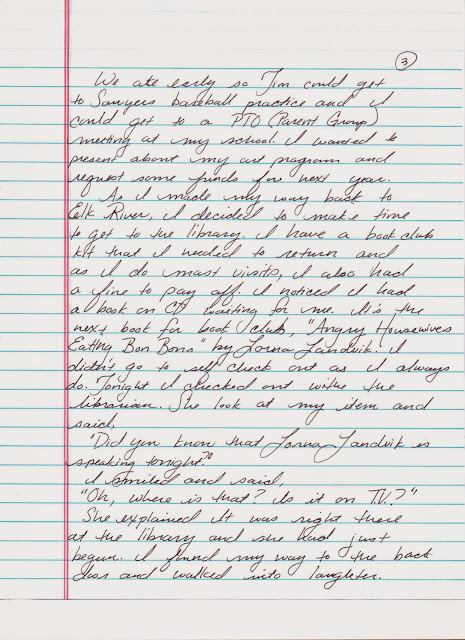 3
We ate early so Jim could get
to Sawyers baseball practice and I
could get to a PTO (Parent Group)
meeting at my school. I wanted to
present about my art program and
request some funds for next year.
As I made my way back to
Elk River, I decided to make time
to get to the library. I have a book club
kit that I needed to return and
as I do most visits, I also had
a fine to pay off. I noticed I had
a book on CD waiting for me. It's the
next book for book club, "Angry Housewives
Eating Bon Bons" by Lorna Landvik. I
didn't go to self check out as I always
do. Tonight I checked out with the
librarian. She look at my item and
said,
"Did you know that Lorna Landvik is
speaking tonight?"
I smiled and said,
"Oh, where is that? Is it on TV?"
She explained it was right there
at the library and she had just
begun. I found my way to the back
door and walked into laughter.